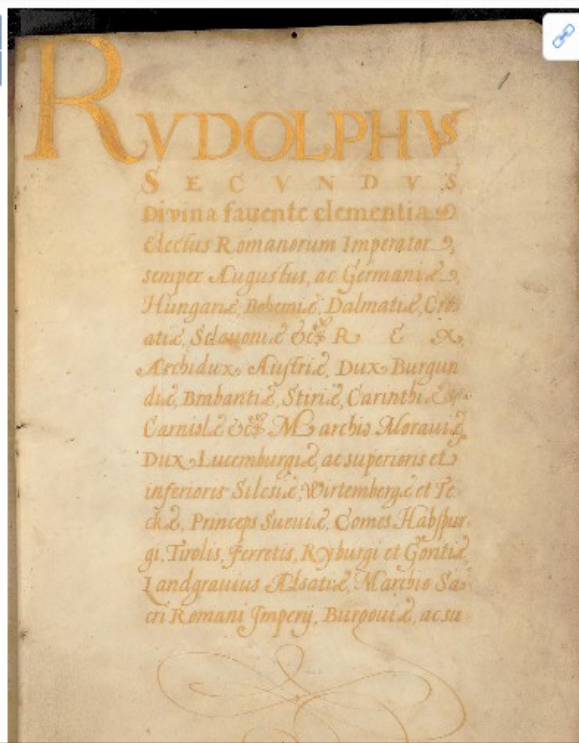 RVDOLPHVS
SECVNDVS
Divina favente clementia
Electus Romanorum Imperator,
semper Augustus, ac Germaniæ,
Hungariæ, Bohemiæ, Dalmatiæ, Cro-
atiæ, Sclavoniæ &c. REX
Archidux Austriæ, Dux Burgun
diæ, Brabantiæ, Stiriæ, Carinthiæ
Carniolæ &c. Marchio Moraviæ,
Dux Lucemburgiæ, ac superioris et
inferioris Silesiæ, Wirtembergæ et Te-
ckæ, Princeps Sueviæ, Comes Habspur-
gi, Tirolis, Ferretis, Kyburgi et Goritiæ,
Landgravius Alsatiæ, Marchio Sa-
cri Romani Imperij, Burgoviæ, ac su